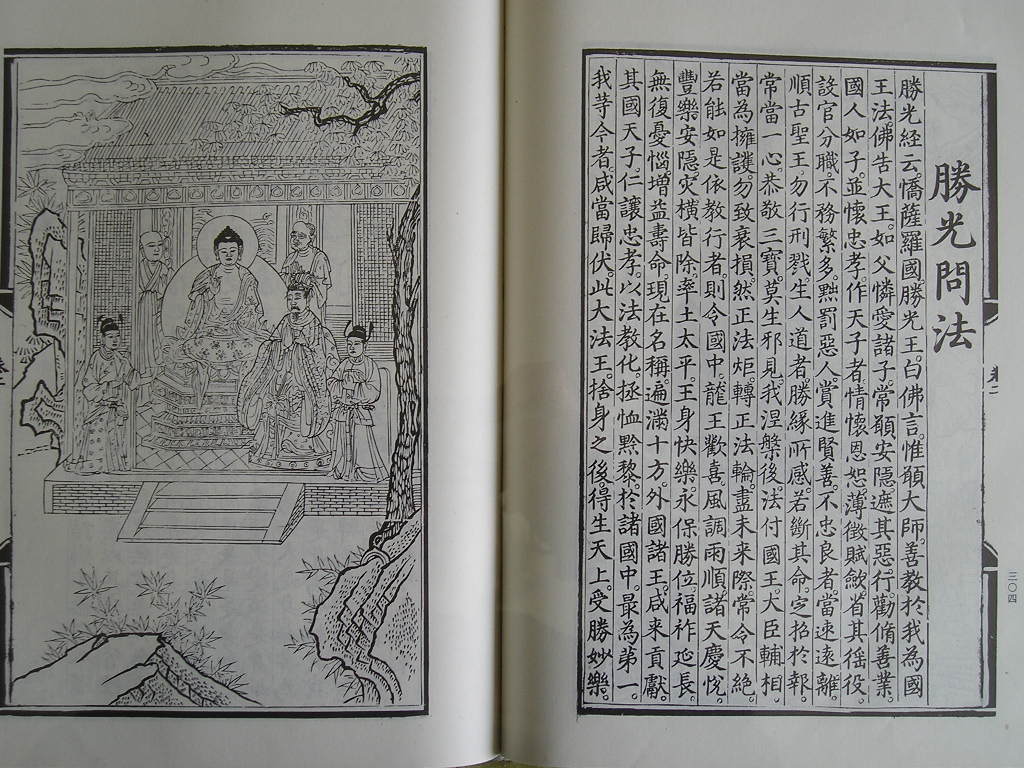 勝光問法
勝光經云。憍薩羅國勝光王。白佛言。惟願大師。善教於我為國
王法。佛告大王。如父憐愛諸子。常願安隱。遮其惡行。勸脩善業。
國人如子。並懷忠孝。作天子者。情懷恩恕。薄徵賦斂。省其徭役。
設官分職。不務繁多。黜罰惡人。賞進賢善。不忠良者。當速遠離。
順古聖王。勿行刑戮。生人道者。勝緣所感。若斷其命。定招於報。
常當一心。恭敬三寶。莫生邪見。我涅槃後。法付國王。大臣輔相。
當為擁護。勿致衰損。然正法炬。轉正法輪。盡未來際。常令不絕。
若能如是依教行者。則令國中。龍王歡喜。風調雨順。諸天慶悅。
豐樂安隱。灾橫皆除。率土太平。王身快樂。永保勝位。福祚延長。
無復憂惱。增益壽命。現在名稱。遍滿十方。外國諸王。咸來貢獻。
其國天子。仁讓忠孝。以法教化。拯恤黔黎。於諸國中。最為第一。
我等今者。咸當歸伏。此大法王。捨身之後。得生天上。受勝妙樂。
卷二
三〇四